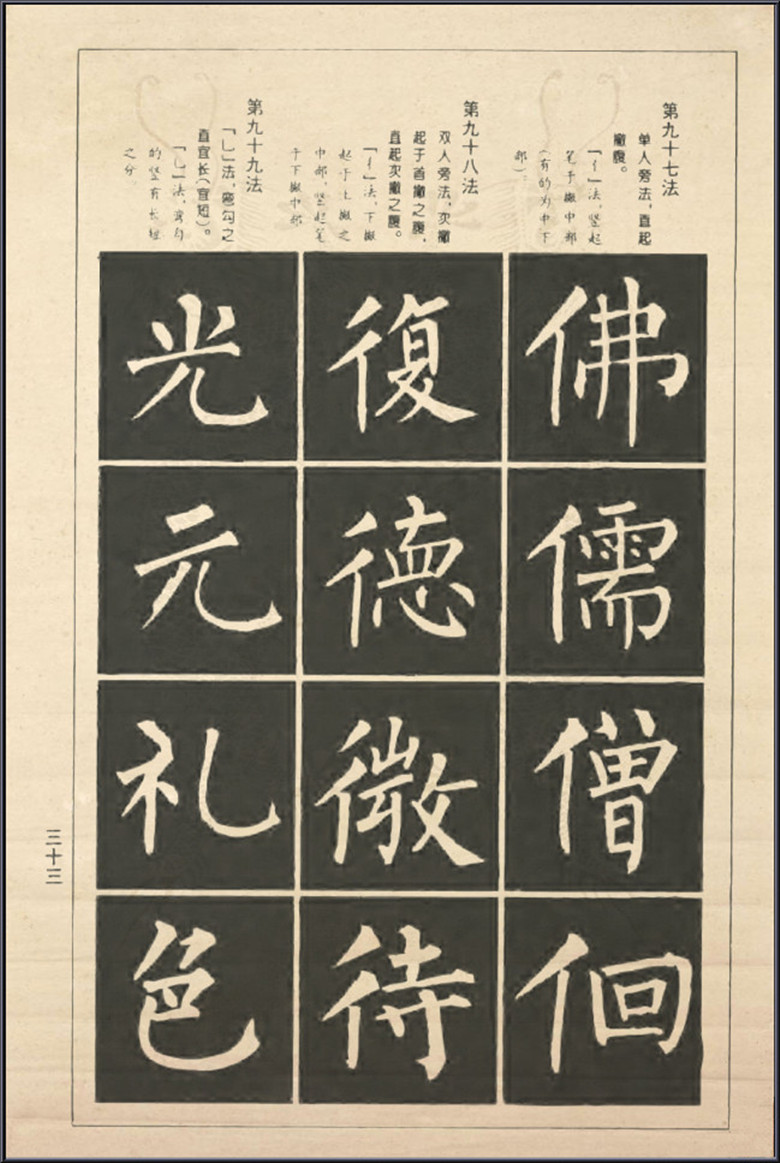 第九十七法
单人旁法，直起
撇腹。
「亻」法，竖起
笔于撇中部
（有的为中下
部）。
佛
儒
僧
徊
第九十八法
双人旁法，次撇
起于首撇之腹，
直起次撇之腹。
「彳」法，下撇
起于上撇之
中部，竖起笔
于下撇中部
復
德
微
待
第九十九法
「乚」法，弯勾之
直宜长（宜短）。
「乚」法，弯勾
的竖有长短
之分
光
元
礼
色
三十三